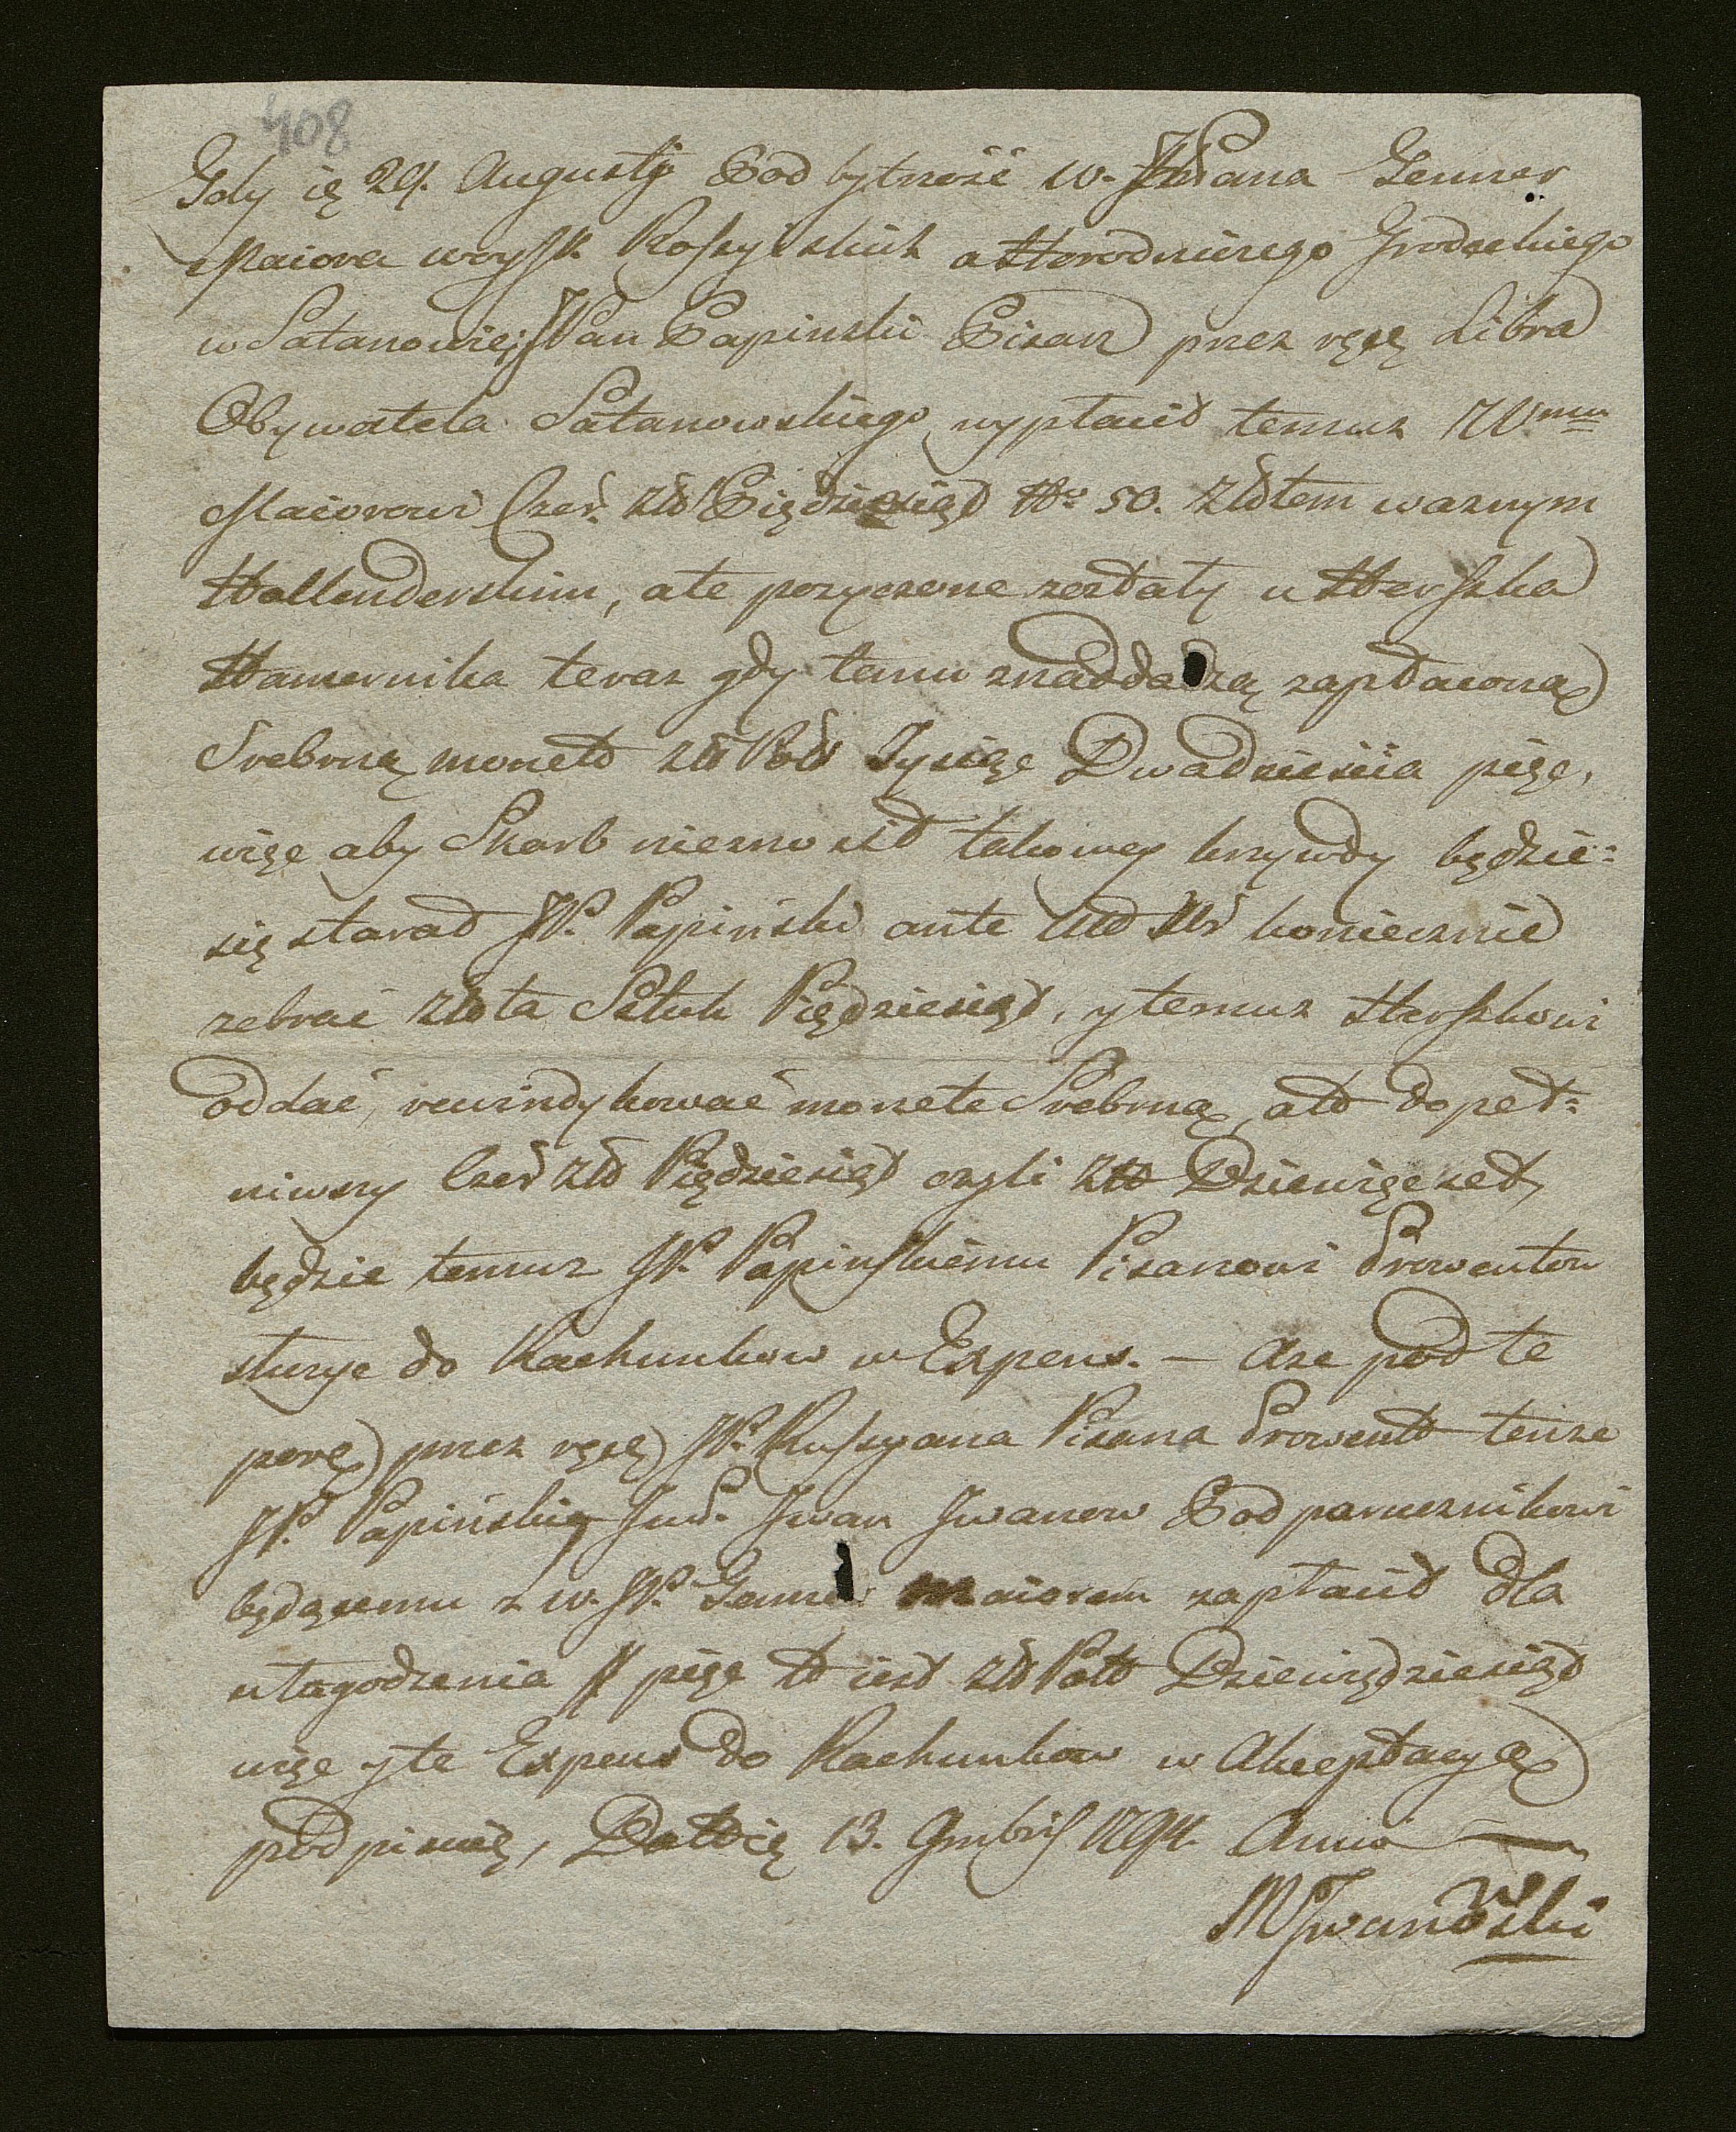 408
Gdy ię 29. Augusty Pod bytność W. JPana Genner
Maiora woysk Rossyiskich a Horodniczego Grodeckiego
w Satanowie, JPan Papinski Pisarz przez ręce Libra
Obywatela Satanowskiego wypłacił temuz WMu
Maiorowi Czer. Zło Piędziesiąt No 50. Złotem waznym
Hollenderskim, ale pozyczone zostały u Herszka
Hamernika teraz gdy temu znaddadzą zapłaconą
Srebrną monetą Zło Pols Tysiąc Dwadziescia pięc,
więc aby Skarb nieznosił takowey krzywdy będzie=
się starał JP. Papinski ante koniecznie
zebrać Złota Sztuk Pięдziesiąt, y temuz Herszkowi
oddać, rewindykować monete Srebrną, ato dopeł=
niwszy Czer Zło Pięдziesiąt czyli Zło Dziewięcset,
będzie temuz JP. Papinskiemu Pisarzowi Prowentow
sturzyc do Rachunkow w Expens. — Aze pod te
porę przez ręcę JP. Russyana Pisarza Prowento tenze
JP. Papiński Iwan Iwanow Podparucznikowi
będącemu z W. JP. Genner Maiorem zapłacił dla
ułagodzenia # pięc to iest Zło Polo Dziewiędziesiąt
więc y te Expens do Rachunkow w Akceptacyę
podpisuię, Datt ię 13. Gmbris 1794. Anno
M Jwanowski